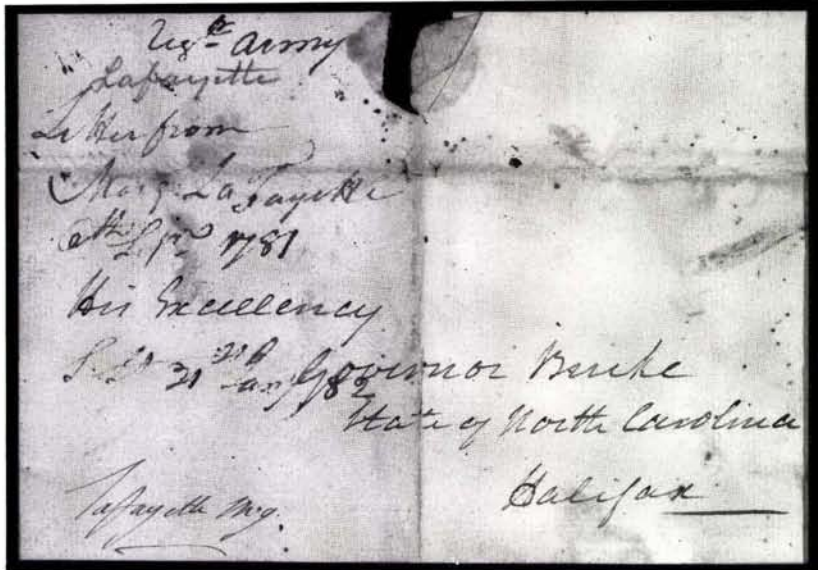 army
Lafayette
Letter from
Marq. La Fayette
Sepr 1781
His Excellency
31 Jany 82
Governor Burke
State of North Carolina
Halifax
Lafayette Mg.